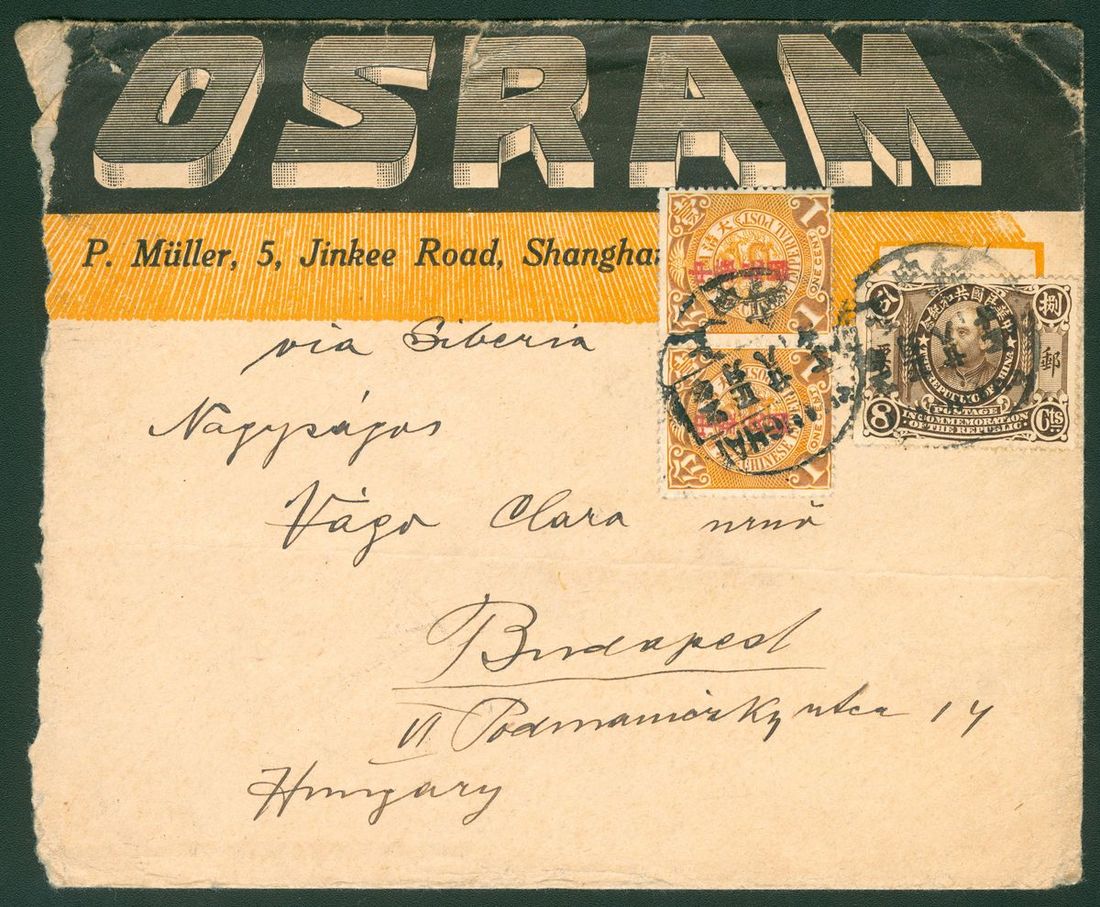 OSRAM
P. Müller, 5, Jinkee Road, Shangha
via Siberia
Nagyságos
Vágo Clara urnö
Budapest
VI Podmaniczky utca 14
Hungary
1 1
ONE CENT
1 1
ONE CENT
CHINESE
捌
郵
THE REPUBLIC OF CHINA
POSTAGE
8 IN COMMEMORATION Cts
OF THE REPUBLIC